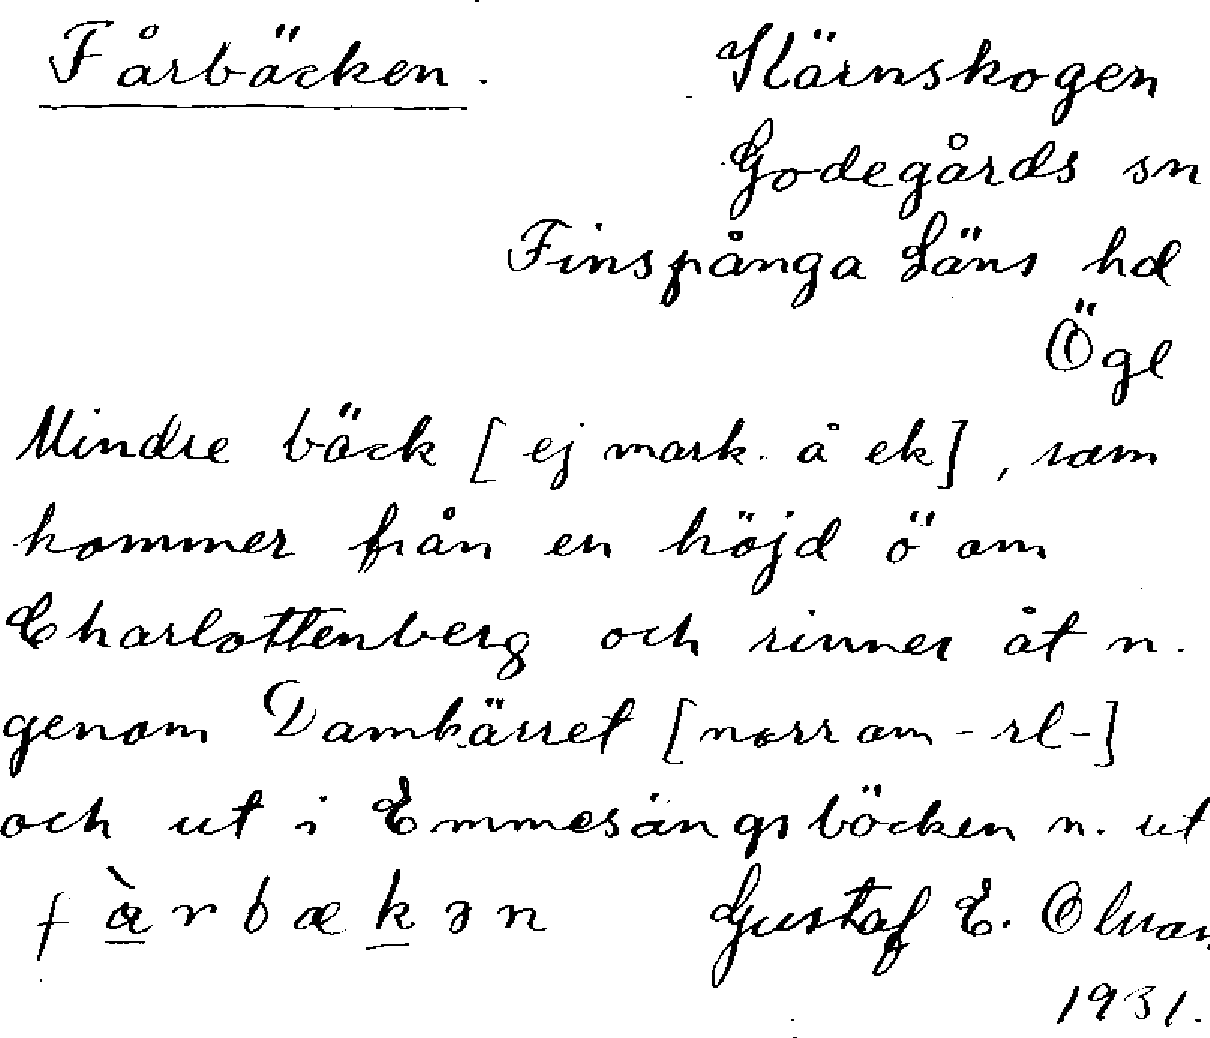 Fårbäcken. Kärnskogen
Godegårds sn
Finspånga Läns hd
Ögl
Mindre bäck [ej mark. å ek], som
kommer från en höjd ö om
Charlottenberg och rinner åt n.
genom Damkärret [norr om -rl-]
och ut i Emmesängsbäcken n. ut
Gustaf E.
1931.